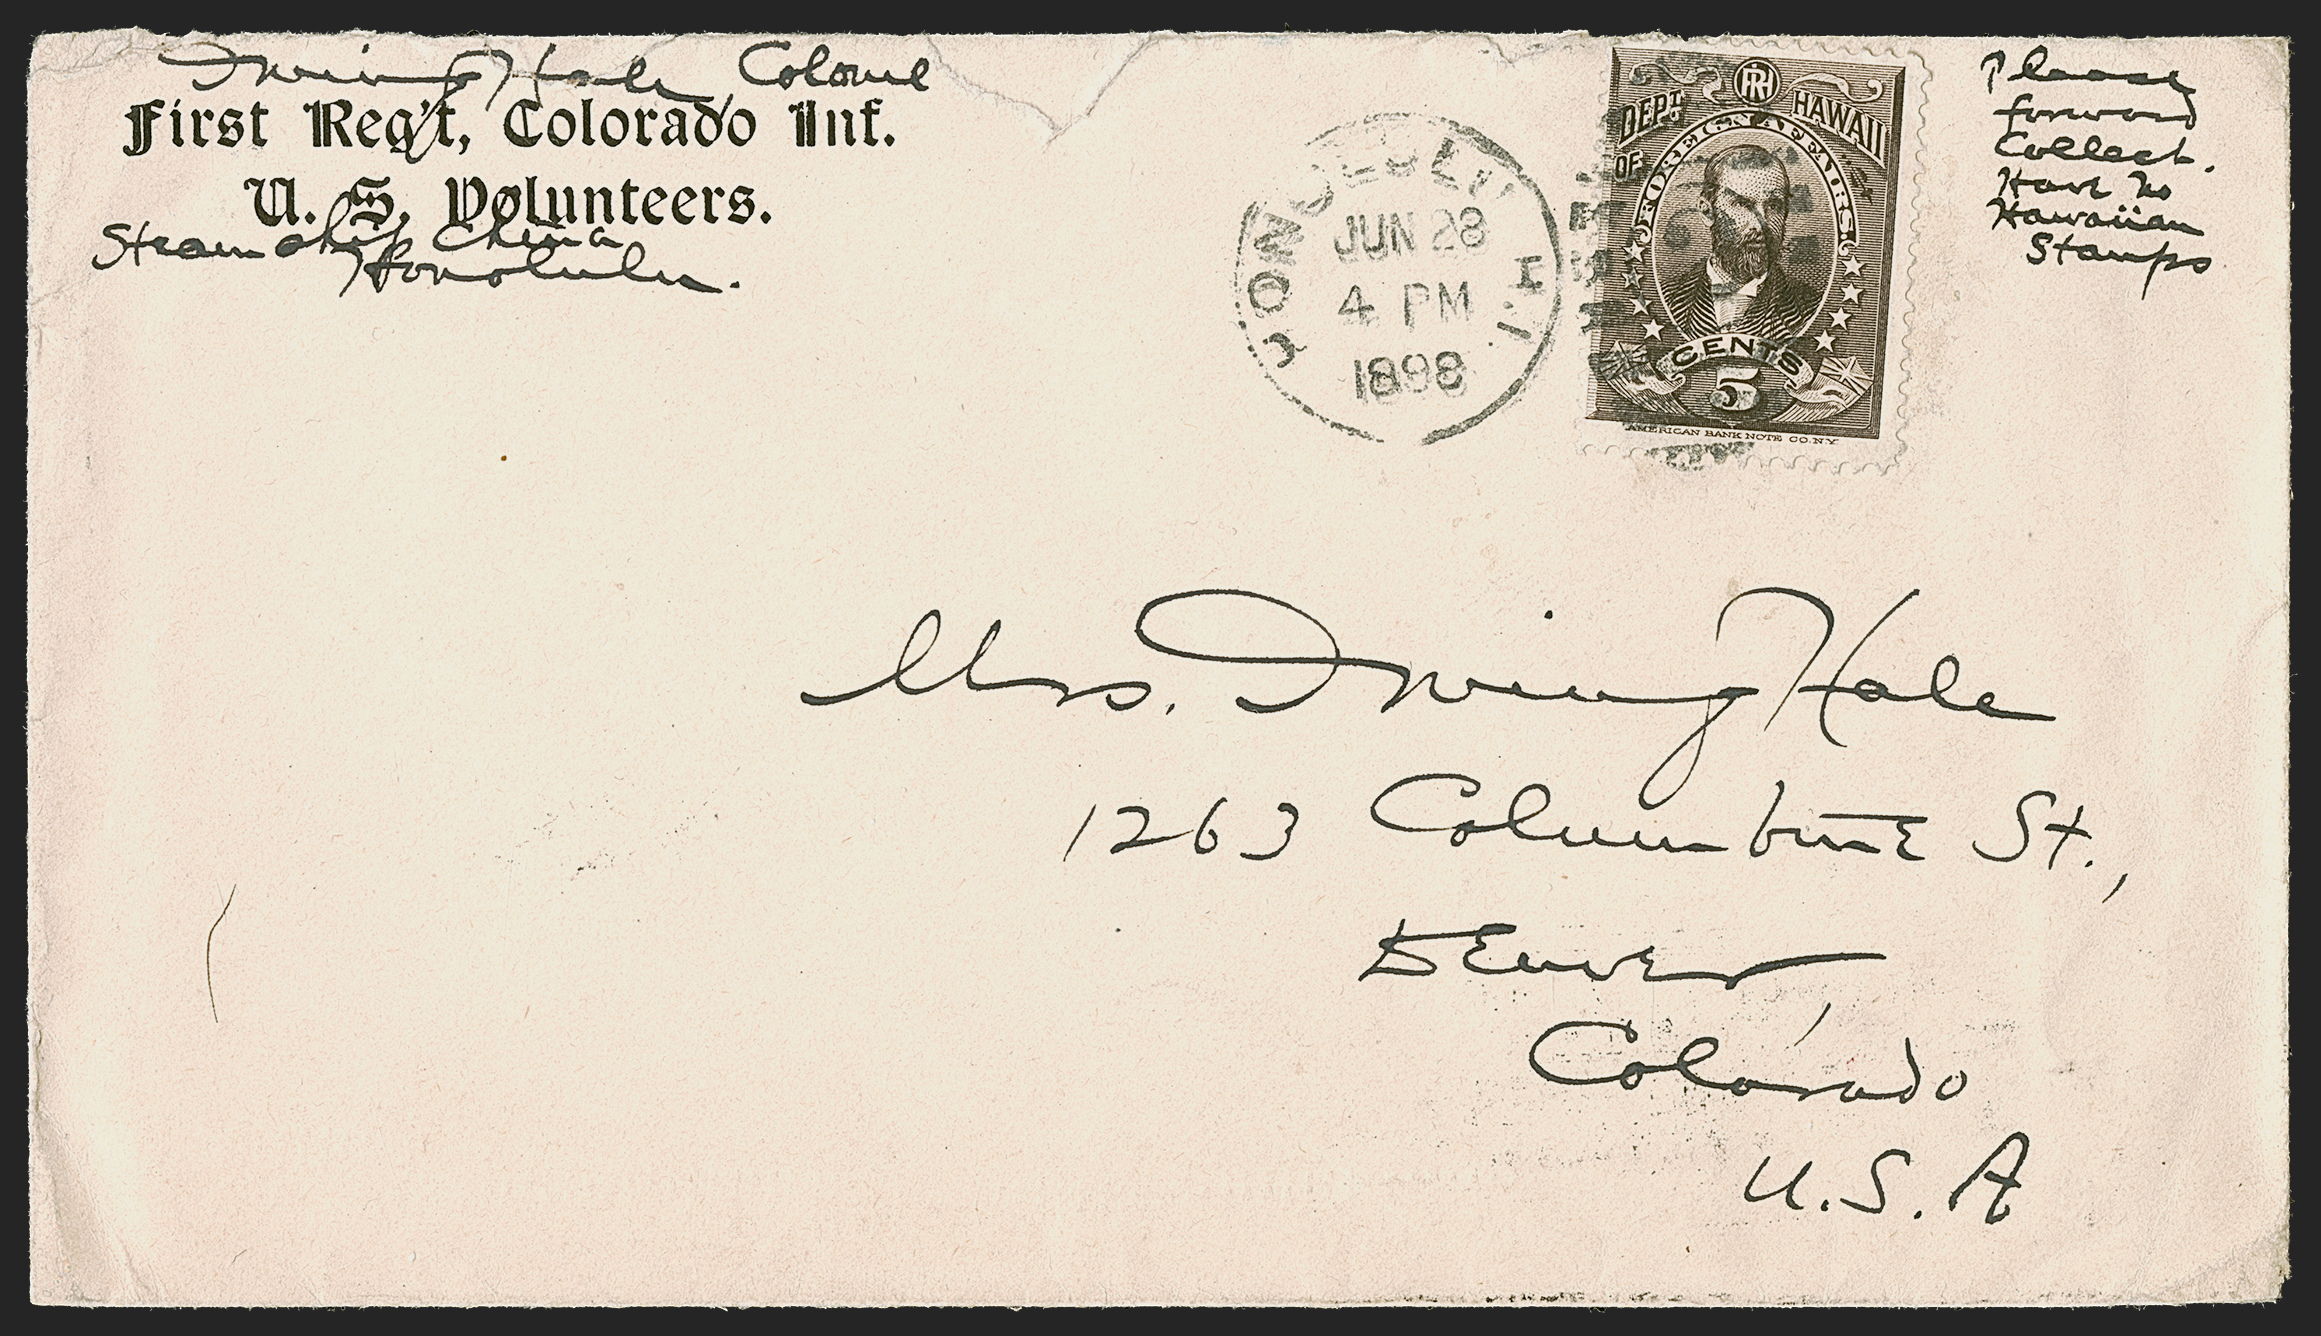 Irving Hale, Colonel
First Reg't, Colorado Inf.
U. S. Volunteers.
Steamship China
Honolulu.
HONOLULU H.I.
JUN 28
4 PM
1898
RH
DEPT. OF FOREIGN AFFAIRS. HAWAII
CENTS
5
AMERICAN BANK NOTE CO. N.Y.
Please
forward
Collect.
Have no
Hawaiian
Stamps
Mrs. Irving Hale
1263 Columbine St.,
Denver,
Colorado
U.S.A